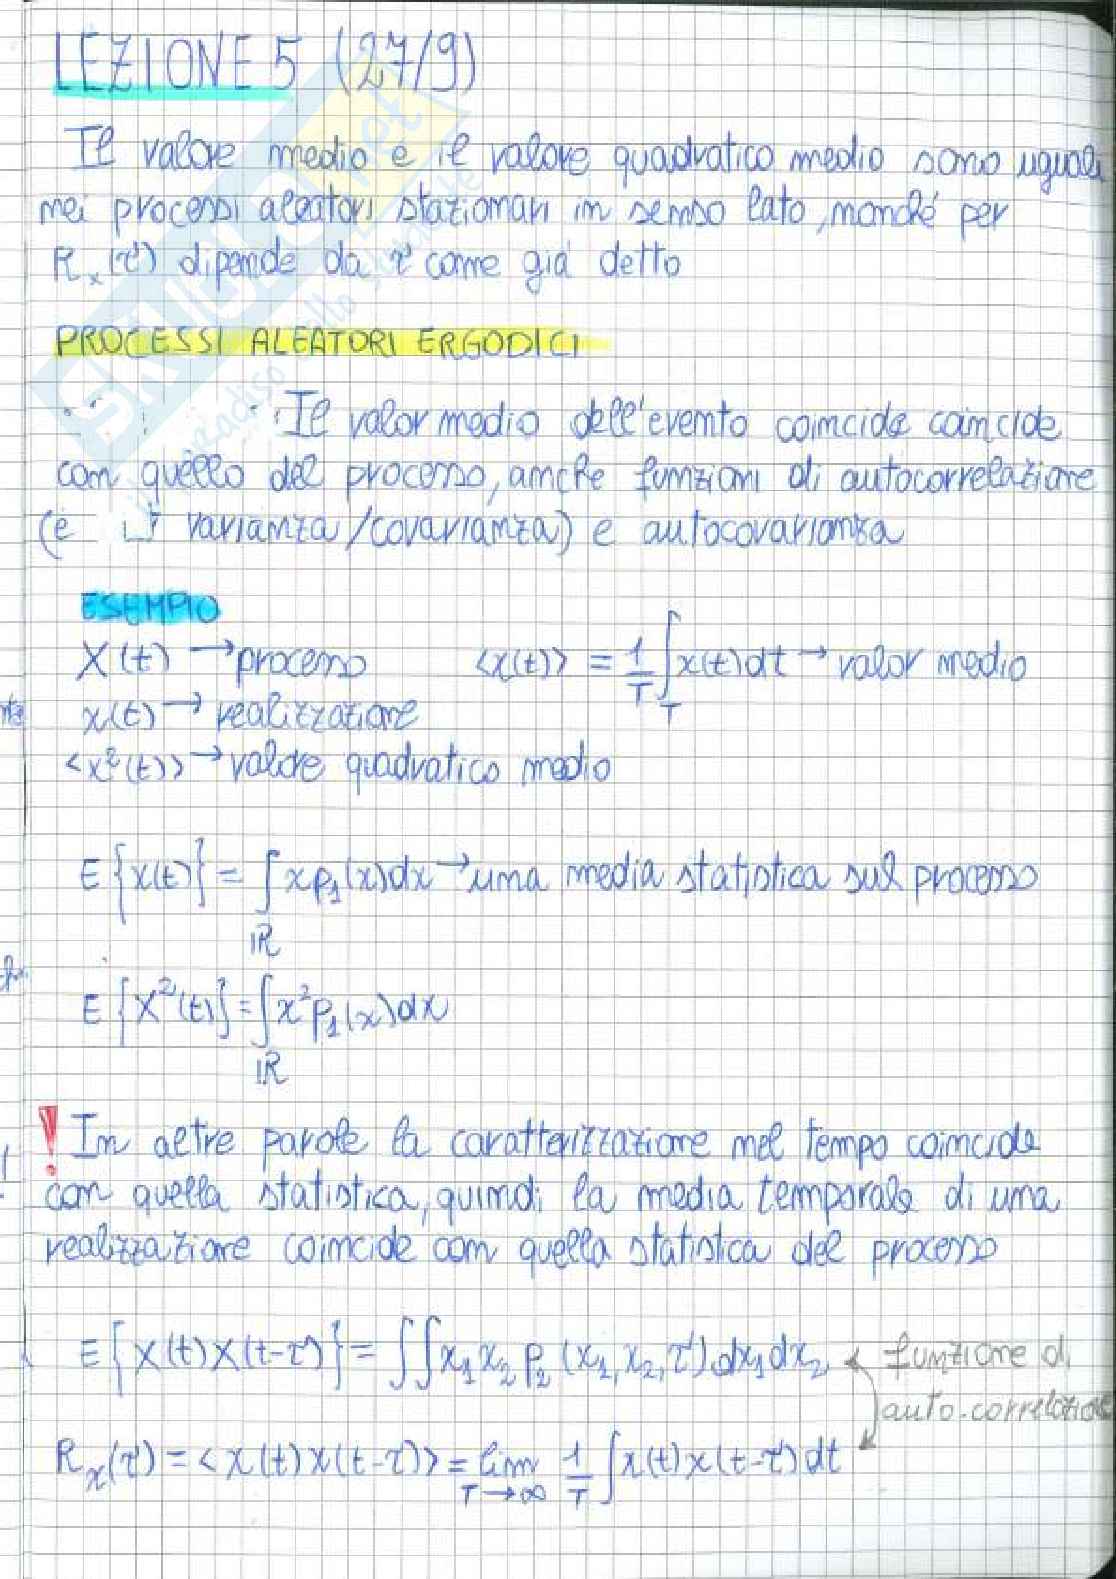 LEZIONE 5 (27/9)
Il valore medio e il valore quadratico medio sono uguali
nei processi aleatori stazionari in senso lato, nonché per
Rₓ(τ) dipende da τ come già detto
PROCESSI ALEATORI ERGODICI
Il valor medio dell'evento coincide coincide
con quello del processo, anche funzioni di autocorrelazione
(e varianza/covarianza) e autocovarianza
ESEMPIO
X(t) → processo <x(t)> = 1/T ∫_T x(t)dt → valor medio
x(t) → realizzazione
<x²(t)> → valore quadratico medio
E{x(t)} = ∫_ℝ x p₁(x)dx → una media statistica sul processo
E{X²(t)} = ∫_ℝ x² p₁(x)dx
! In altre parole la caratterizzazione nel tempo coincide
con quella statistica, quindi la media temporale di una
realizzazione coincide con quella statistica del processo
E{X(t)X(t-τ)} = ∫∫ x₁ x₂ p₂(x₁, x₂, τ) dx₁ dx₂ ← funzione di
auto-correlazione
Rₓ(τ) = <x(t)x(t-τ)> = lim_{T→∞} 1/T ∫ x(t)x(t-τ)dt
SKUOLA.net
il paradiso dello studente